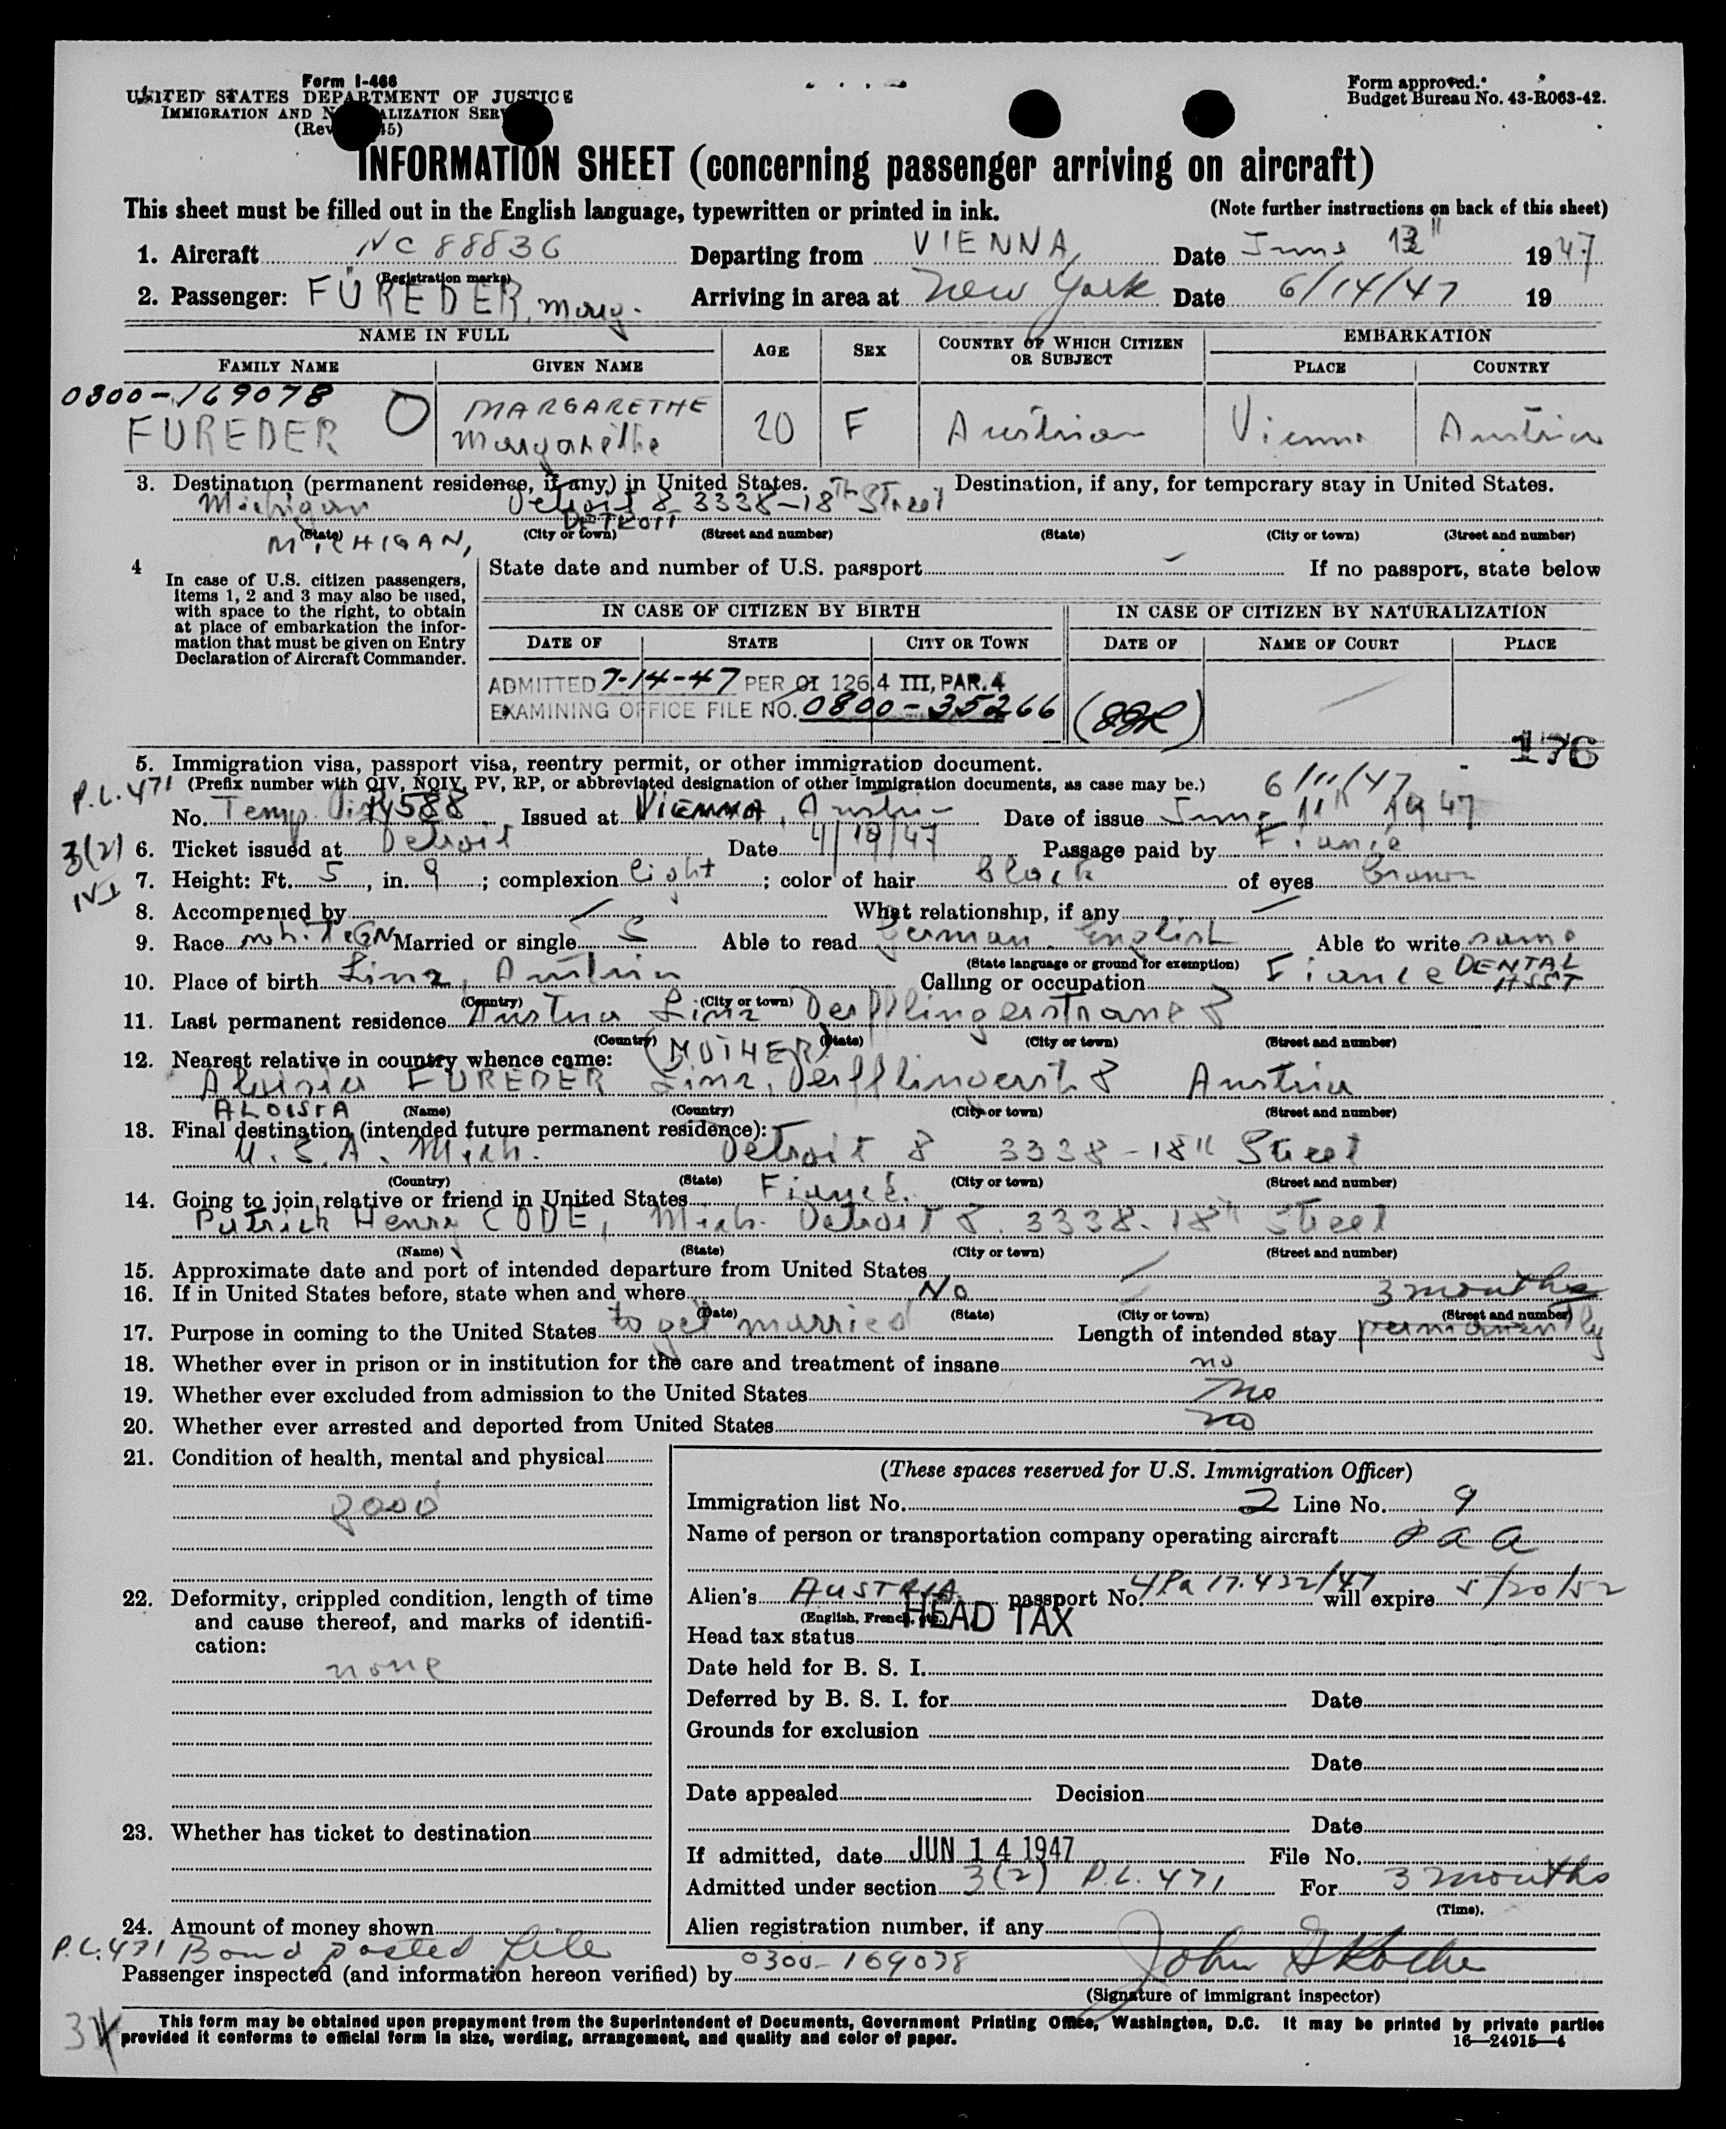 Form I-466
UNITED STATES DEPARTMENT OF JUSTICE
IMMIGRATION AND NATURALIZATION SERVICE
Form approved.
Budget Bureau No. 43-R063-42.
INFORMATION SHEET (concerning passenger arriving on aircraft)
This sheet must be filled out in the English language, typewritten or printed in ink. (Note further instructions on back of this sheet)
1. Aircraft NC 88836 Departing from VIENNA, Date June 1947
(Registration marks)
2. Passenger: FÜREDER, Marg. Arriving in area at New York Date 6/14/47 19
NAME IN FULL AGE SEX COUNTRY OF WHICH CITIZEN OR SUBJECT EMBARKATION
FAMILY NAME GIVEN NAME PLACE COUNTRY
0300-169078
FUREDER O MARGARETHE Margarethe 20 F Austrian Vienna Austria
3. Destination (permanent residence, if any) in United States. Destination, if any, for temporary stay in United States.
Michigan Detroit 8 3338-18th Street
DETROIT
(State) (City or town) (Street and number) (State) (City or town) (Street and number)
MICHIGAN,
4 In case of U.S. citizen passengers, items 1, 2 and 3 may also be used, with space to the right, to obtain at place of embarkation the information that must be given on Entry Declaration of Aircraft Commander.
State date and number of U.S. passport If no passport, state below
IN CASE OF CITIZEN BY BIRTH IN CASE OF CITIZEN BY NATURALIZATION
DATE OF STATE CITY OR TOWN DATE OF NAME OF COURT PLACE
ADMITTED 7-14-47 PER OI 126.4 III, PAR. 4
EXAMINING OFFICE FILE NO. 0800-35266
176
5. Immigration visa, passport visa, reentry permit, or other immigration document.
P.L. 471 (Prefix number with QIV, NQIV, PV, RP, or abbreviated designation of other immigration documents, as case may be.) 6/11/47
No. Temp. Vis 14588 Issued at VIENNA, Austria Date of issue June 11th 1947
3(2) 6. Ticket issued at Detroit Date 4/19/47 Passage paid by Fiancé
7. Height: Ft. 5, in. 9; complexion light; color of hair black of eyes brown
8. Accompanied by What relationship, if any
9. Race Married or single S Able to read German. English Able to write same
(State language or ground for exemption)
10. Place of birth Linz, Austria Calling or occupation Fiancé DENTAL ASST
(Country) (City or town)
11. Last permanent residence Austria Linz Derfflingerstrasse 8
(Country) (State) (City or town) (Street and number)
12. Nearest relative in country whence came: (MOTHER)
Aloisia FUREDER Linz, Derfflingerst. 8 Austria
ALOISIA (Name) (Country) (City or town) (Street and number)
13. Final destination (intended future permanent residence):
U.S.A. Mich. Detroit 8 3338-18th Street
(Country) (State) (City or town) (Street and number)
14. Going to join relative or friend in United States Fiancé.
Patrick Henry CODE, Mich. Detroit 8. 3338-18th Street
(Name) (State) (City or town) (Street and number)
15. Approximate date and port of intended departure from United States
16. If in United States before, state when and where No 3 months
(Date) (State) (City or town) (Street and number)
17. Purpose in coming to the United States to get married Length of intended stay permanently
18. Whether ever in prison or in institution for the care and treatment of insane no
19. Whether ever excluded from admission to the United States no
20. Whether ever arrested and deported from United States no
21. Condition of health, mental and physical
good
22. Deformity, crippled condition, length of time and cause thereof, and marks of identification:
none
23. Whether has ticket to destination
24. Amount of money shown
P.L. 471 Bond posted file
(These spaces reserved for U.S. Immigration Officer)
Immigration list No. 2 Line No. 9
Name of person or transportation company operating aircraft P a a
Alien's AUSTRIA passport No. 4Pa 17.422/47 will expire 5/20/52
(English, French, etc.)
Head tax status HEAD TAX
Date held for B. S. I.
Deferred by B. S. I. for Date
Grounds for exclusion
Date
Date appealed Decision
Date
If admitted, date JUN 14 1947 File No.
Admitted under section 3(2) P.L. 471 For 3 months
(Time).
Alien registration number, if any
0300-169078
Passenger inspected (and information hereon verified) by John
(Signature of immigrant inspector)
This form may be obtained upon prepayment from the Superintendent of Documents, Government Printing Office, Washington, D.C. It may be printed by private parties
provided it conforms to official form in size, wording, arrangement, and quality and color of paper. 16—24915—4